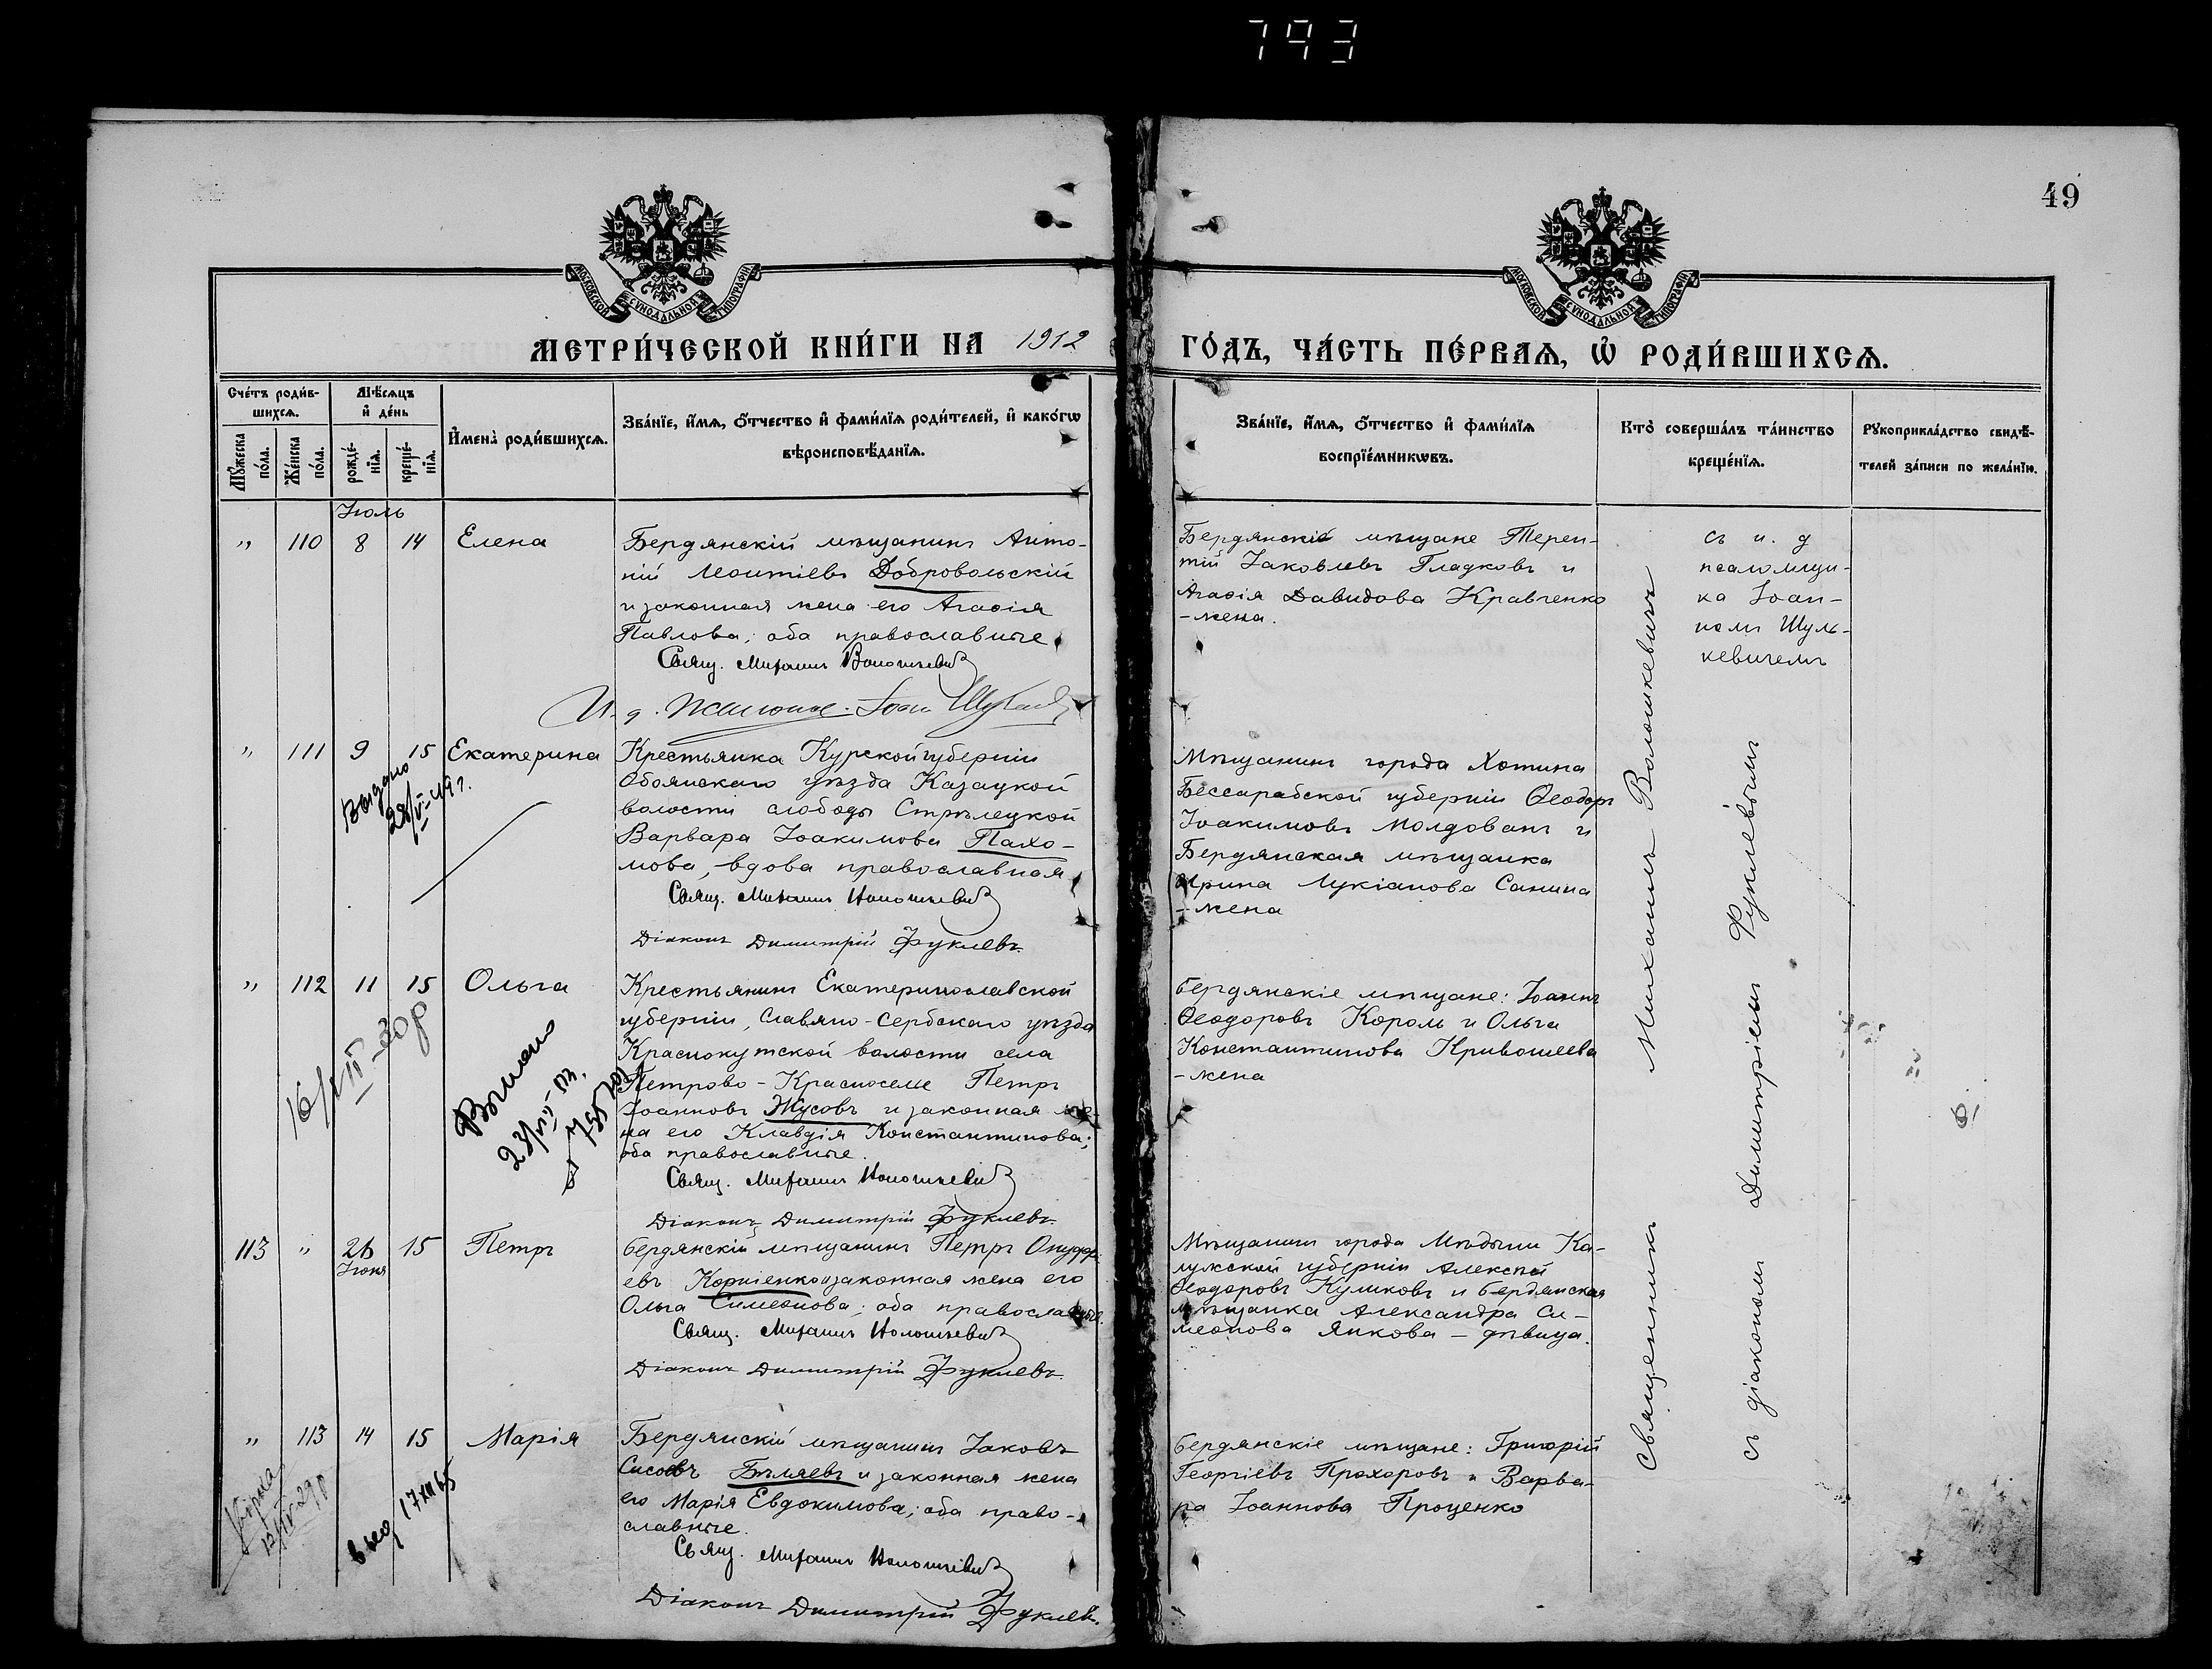 793
49
МОСКОВСКОЙ СѴНОДАЛЬНОЙ ТИПОГРАФІИ
МОСКОВСКОЙ СѴНОДАЛЬНОЙ ТИПОГРАФІИ
МЕТРИ́ЧЕСКОЙ КНИ́ГИ НА 1912 ГО́ДЪ, ЧА́СТЬ ПЕ́РВАЯ, Ѡ РОДИ́ВШИХСЯ.
Сче́тъ роди́в-
шихся.
Мѣ́сяцъ
и де́нь
Мꙋжеска
по́ла.
Же́нска
по́ла.
рожде́-
нїя.
креще́-
нїя.
Имена̀ роди́вшихся.
Зва́нїе, и́мя, ѻ́тчество и фами́лїя роди́телей, и како́гѡ
вѣроисповѣ́данїя.
Зва́нїе, и́мя, ѻ́тчество и фами́лїя
воспрїе́мникѡвъ.
Кто̀ соверша́лъ та́инство
креще́нїя.
Рꙋкоприкла́дство свидѣ́-
телей за́писи по жела́нїю.
Іюль
" 110 8 14 Елена
Бердянскій мѣщанинъ Анто-
ній Леонтіевъ Добровольскій
и законная жена его Агафія
Павлова; оба православные
Свящ. Михаилъ Волошкевичъ
И. д. псаломщ. Іоан
Бердянскіе мѣщане Терен-
тій Іаковлевъ Гладковъ и
Агафія Давидова Кравченко
-жена.
съ и. д
псаломщи-
ка Іоан-
номъ Шуль-
кевичемъ
" 111 9 15 Екатерина
Выдано
28/VI-49 г.
Крестьянка Курской губерніи
Обоянскаго уѣзда Казацкой
волости слободы Стрѣлецкой
Варвара Іоакимова Пахо-
мова, вдова православная
Свящ. Михаилъ Волошкевичъ
Діаконъ Димитрій Фуклевъ
Мѣщанинъ города Хотина
Бессарабской губерніи Ѳеодоръ
Іоакимовъ Молдованъ и
Бердянская мѣщанка
Ирина Лукіанова Санина
-жена
" 112 11 15 Ольга
Крестьянинъ Екатеринославской
губерніи, Славяно-Сербскаго уѣзда
Краснокутской волости села
Петрово-Красноселье Петръ
Іоанновъ Жусовъ и законная же-
на его Клавдія Константинова;
оба православные.
Свящ. Михаилъ Волошкевичъ
Діаконъ Димитрій Фуклевъ
Бердянскіе мѣщане: Іоаннъ
Ѳеодоровъ Король и Ольга
Константинова Кривошеева
-жена
113 " 26 15 Петръ
Іюня
Бердянскій мѣщанинъ Петръ Онуфрі-
евъ Корніенко и законная жена его
Ольга Симеонова; оба православные.
Свящ. Михаилъ Волошкевичъ
Діаконъ Димитрій Фуклевъ
Мѣщанинъ города Мѣдыни Ка-
лужской губерніи Алексѣй
Ѳеодоровъ Куликовъ и Бердянская
мѣщанка Александра Си-
меонова Янкова - дѣвица.
" 113 14 15 Марія
17 XII 65
Бердянскій мѣщанинъ Іаковъ
Сисоевъ Бѣляевъ и законная жена
его Марія Евдокимова; оба право-
славные.
Свящ. Михаилъ Волошкевичъ
Діаконъ Димитрій Фуклевъ
Бердянскіе мѣщане: Григорій
Георгіевъ Прохоровъ и Варва-
ра Іоаннова Проценко
Священникъ Михаилъ Волошкевичъ
съ діакономъ Димитріемъ Фуклевымъ